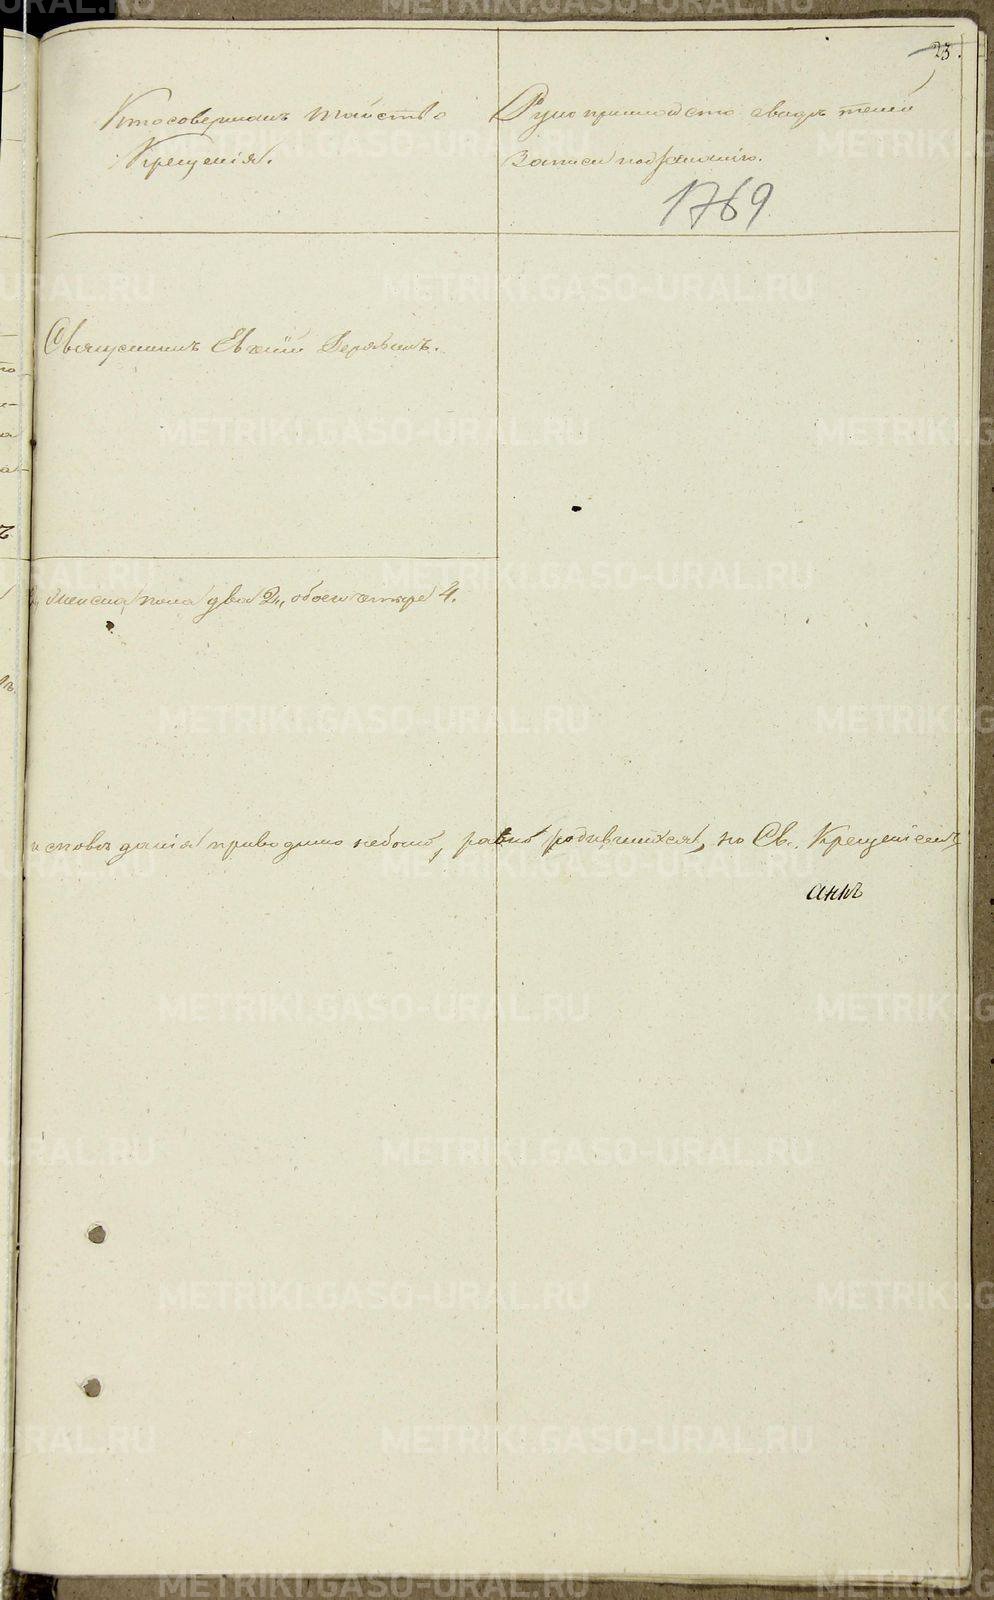 23.
Кто совершалъ таинство
Крещенія.
Рукоприкладство свидѣтелей
записи по желанію.
1769
Священникъ Евѳимій
женска пола два 2, обоего четыре 4.
исповѣданія приводимо небыло, равно родившихся, но Св. Крещеніемъ
METRIKI.GASO-URAL.RU